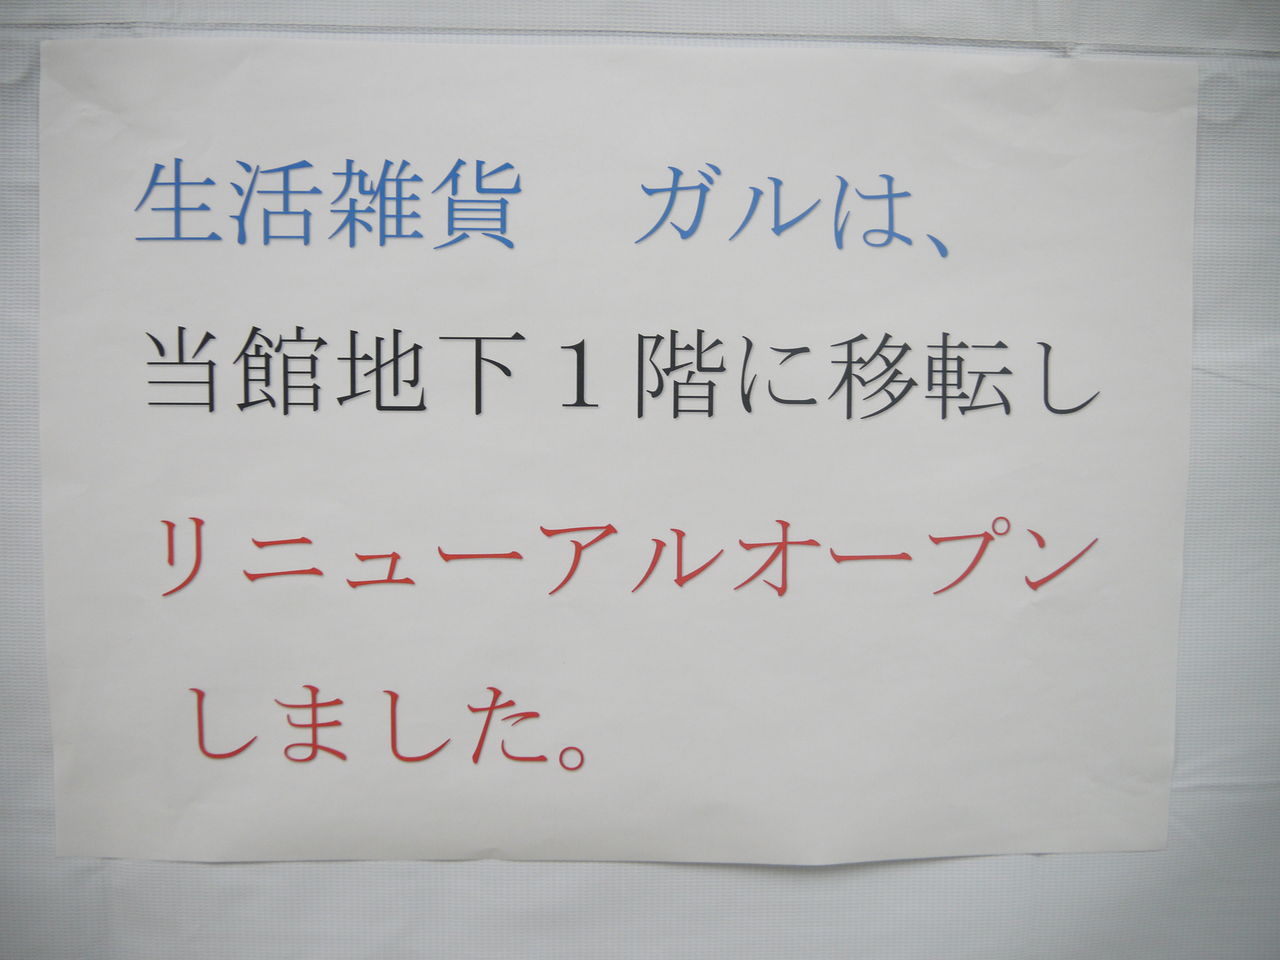 生活雑貨　ガルは、
当館地下１階に移転し
リニューアルオープン
しました。